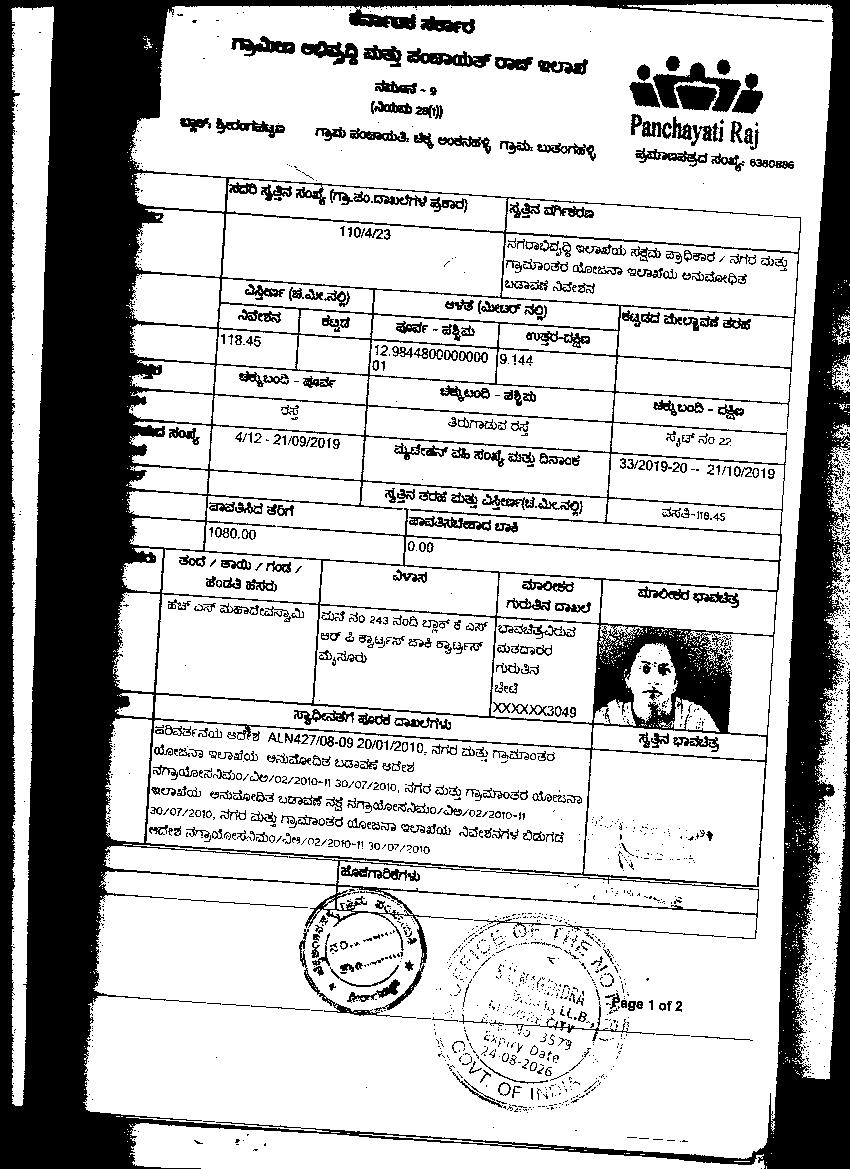 ಕರ್ನಾಟಕ ಸರ್ಕಾರ
ಗ್ರಾಮೀಣ ಅಭಿವೃದ್ಧಿ ಮತ್ತು ಪಂಚಾಯತ್ ರಾಜ್ ಇಲಾಖೆ
ನಮೂನೆ - 9
(ನಿಯಮ 28(1))
Panchayati Raj
ಬ್ಲಾಕ್: ಶ್ರೀರಂಗಪಟ್ಟಣ ಗ್ರಾಮ ಪಂಚಾಯತಿ: ಚಿಕ್ಕ ಅಂಕನಹಳ್ಳಿ ಗ್ರಾಮ:
ಪ್ರಮಾಣಪತ್ರದ ಸಂಖ್ಯೆ: 6380896
ಸದರಿ ಸ್ವತ್ತಿನ ಸಂಖ್ಯೆ (ಗ್ರಾ.ಪಂ.ದಾಖಲೆಗಳ ಪ್ರಕಾರ) ಸ್ವತ್ತಿನ ವರ್ಗೀಕರಣ
110/4/23
ನಗರಾಭಿವೃದ್ಧಿ ಇಲಾಖೆಯ ಸಕ್ಷಮ ಪ್ರಾಧಿಕಾರ / ನಗರ ಮತ್ತು
ಗ್ರಾಮಾಂತರ ಯೋಜನಾ ಇಲಾಖೆಯ ಅನುಮೋದಿತ
ಬಡಾವಣೆ ನಿವೇಶನ
ವಿಸ್ತೀರ್ಣ (ಚ.ಮೀ.ನಲ್ಲಿ) ಅಳತೆ (ಮೀಟರ್ ನಲ್ಲಿ) ಕಟ್ಟಡದ ಮೇಲ್ಛಾವಣಿ ತರಹೆ
ನಿವೇಶನ ಕಟ್ಟಡ ಪೂರ್ವ - ಪಶ್ಚಿಮ ಉತ್ತರ-ದಕ್ಷಿಣ
118.45 12.9844800000000 9.144
01
ಚಕ್ಕುಬಂದಿ - ಪೂರ್ವ ಚಕ್ಕುಬಂದಿ - ಪಶ್ಚಿಮ ಚಕ್ಕುಬಂದಿ - ದಕ್ಷಿಣ
ರಸ್ತೆ ತಿರುಗಾಡುವ ರಸ್ತೆ ಸೈಟ್ ನಂ 22
ಸಂಖ್ಯೆ 4/12 - 21/09/2019 ಮ್ಯುಟೇಶನ್ ವಹಿ ಸಂಖ್ಯೆ ಮತ್ತು ದಿನಾಂಕ 33/2019-20 -- 21/10/2019
ಸ್ವತ್ತಿನ ತರಹೆ ಮತ್ತು ವಿಸ್ತೀರ್ಣ(ಚ.ಮೀ.ನಲ್ಲಿ) ವಸತಿ-118.45
ಪಾವತಿಸಿದ ತೆರಿಗೆ ಪಾವತಿಸಬೇಕಾದ ಬಾಕಿ
1080.00 0.00
ತಂದೆ / ತಾಯಿ / ಗಂಡ / ವಿಳಾಸ ಮಾಲೀಕರ ಮಾಲೀಕರ ಭಾವಚಿತ್ರ
ಹೆಂಡತಿ ಹೆಸರು ಗುರುತಿನ ದಾಖಲೆ
ಹೆಚ್ ಎಸ್ ಮಹಾದೇವಸ್ವಾಮಿ ಮನೆ ನಂ 243 ನಂದಿ ಬ್ಲಾಕ್ ಕೆ ಎಸ್ ಭಾವಚಿತ್ರವಿರುವ
ಆರ್ ಪಿ ಕ್ವಾರ್ಟ್ರಸ್ ಜಾಕಿ ಕ್ವಾರ್ಟ್ರಸ್ ಮತದಾರರ
ಮೈಸೂರು ಗುರುತಿನ
ಚೀಟಿ
XXXXXX3049
ಸ್ವಾಧೀನತೆಗೆ ಪೂರಕ ದಾಖಲೆಗಳು ಸ್ವತ್ತಿನ ಭಾವಚಿತ್ರ
ಪರಿವರ್ತನೆಯ ಆದೇಶ ALN427/08-09 20/01/2010, ನಗರ ಮತ್ತು ಗ್ರಾಮಾಂತರ
ಯೋಜನಾ ಇಲಾಖೆಯ ಅನುಮೋದಿತ ಬಡಾವಣೆ ಆದೇಶ
ನಗ್ರಾಯೋಸನಿಮಂ/ವಿಅ/02/2010-11 30/07/2010, ನಗರ ಮತ್ತು ಗ್ರಾಮಾಂತರ ಯೋಜನಾ
ಇಲಾಖೆಯ ಅನುಮೋದಿತ ಬಡಾವಣೆ ನಕ್ಷೆ ನಗ್ರಾಯೋಸನಿಮಂ/ವಿಅ/02/2010-11
30/07/2010, ನಗರ ಮತ್ತು ಗ್ರಾಮಾಂತರ ಯೋಜನಾ ಇಲಾಖೆಯ ನಿವೇಶನಗಳ ಬಿಡುಗಡೆ
ಆದೇಶ ನಗ್ರಾಯೋಸನಿಮಂ/ವಿಅ/02/2010-11 30/07/2010
ಹೊಣೆಗಾರಿಕೆಗಳು
ಗ್ರಾಮ ಪಂಚಾಯತಿ
OFFICE OF THE NOTARY
GOVT. OF INDIA
LL.B.,
CITY
3579
Expiry Date
24-08-2026
Page 1 of 2